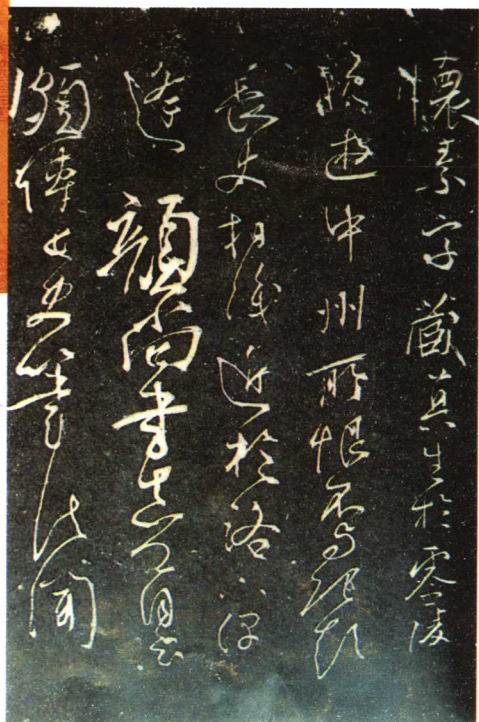 懷素字藏真生於零陵
晚遊中州所恨不與張顛
長史相識近於洛下偶
逢顏尚書真卿自云
頗傳長史筆法聞